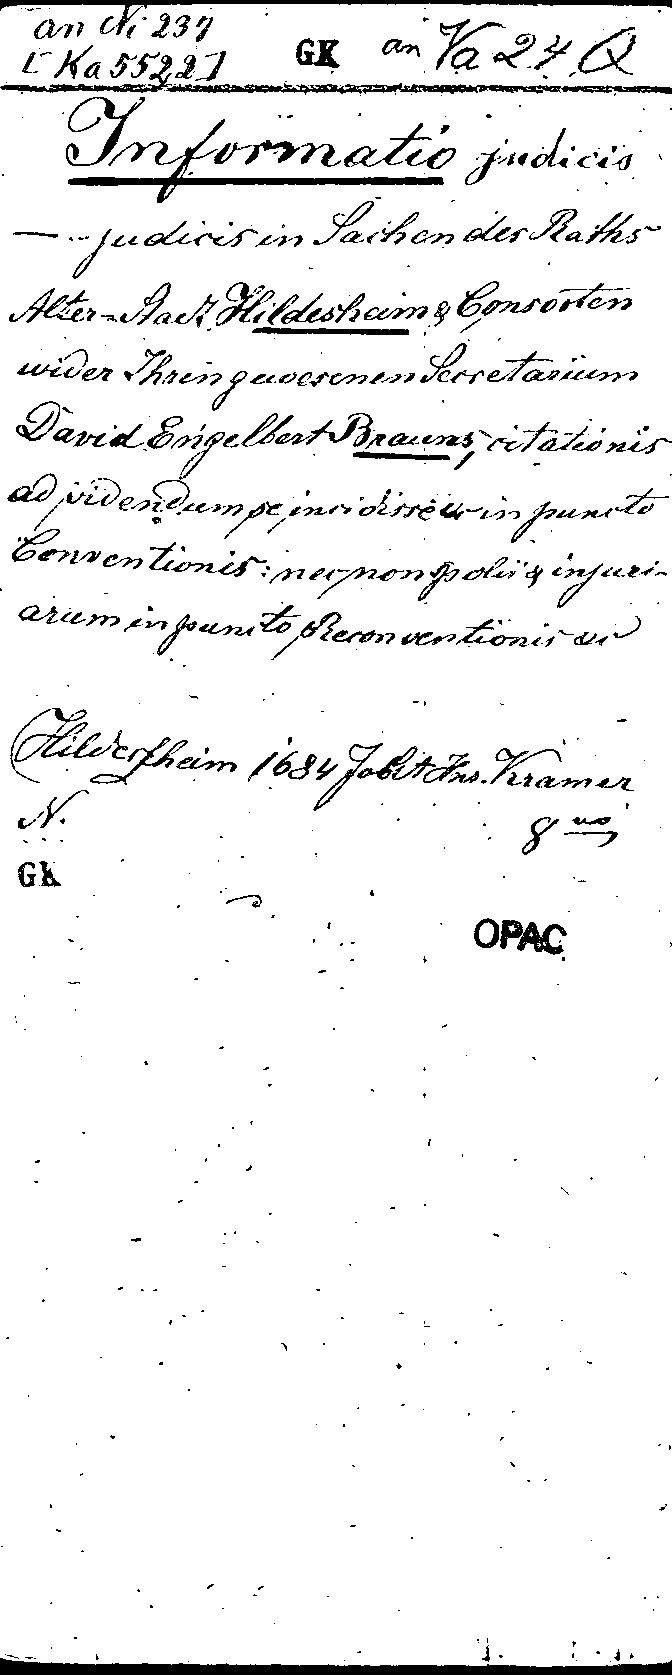 an Ni 237
[Ka 5522] GK an Va 24 Q
Informatio judicis
— .. judicis in Sachen des Raths
Alter=Stadt Hildesheim & Consorten
wider Ihrin gewesenen Secretarium
David Engelbert Brauns, citationis
ad videndum se incidisse &c in puncto
Conventionis: nec non spolii & injuri-
arum in puncto Reconventionis &c
Hildesheim 1684 Jobst Hnr. Kramer
N. 8 vo
GK
OPAC